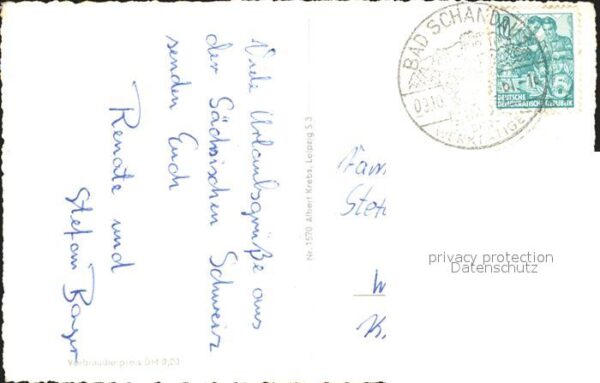 Viele Urlaubsgrüße aus
der Sächsischen Schweiz
senden Euch
Renate und
Stefan
Verbraucherpreis DM 0,20
Nr. 1570 Albert Krebs, Leipzig S 3
BAD SCHANDAU
DEUTSCHE
DEMOKRATISCHE REPUBLIK
Fam
Stef
W
K.
privacy protection
Datenschutz